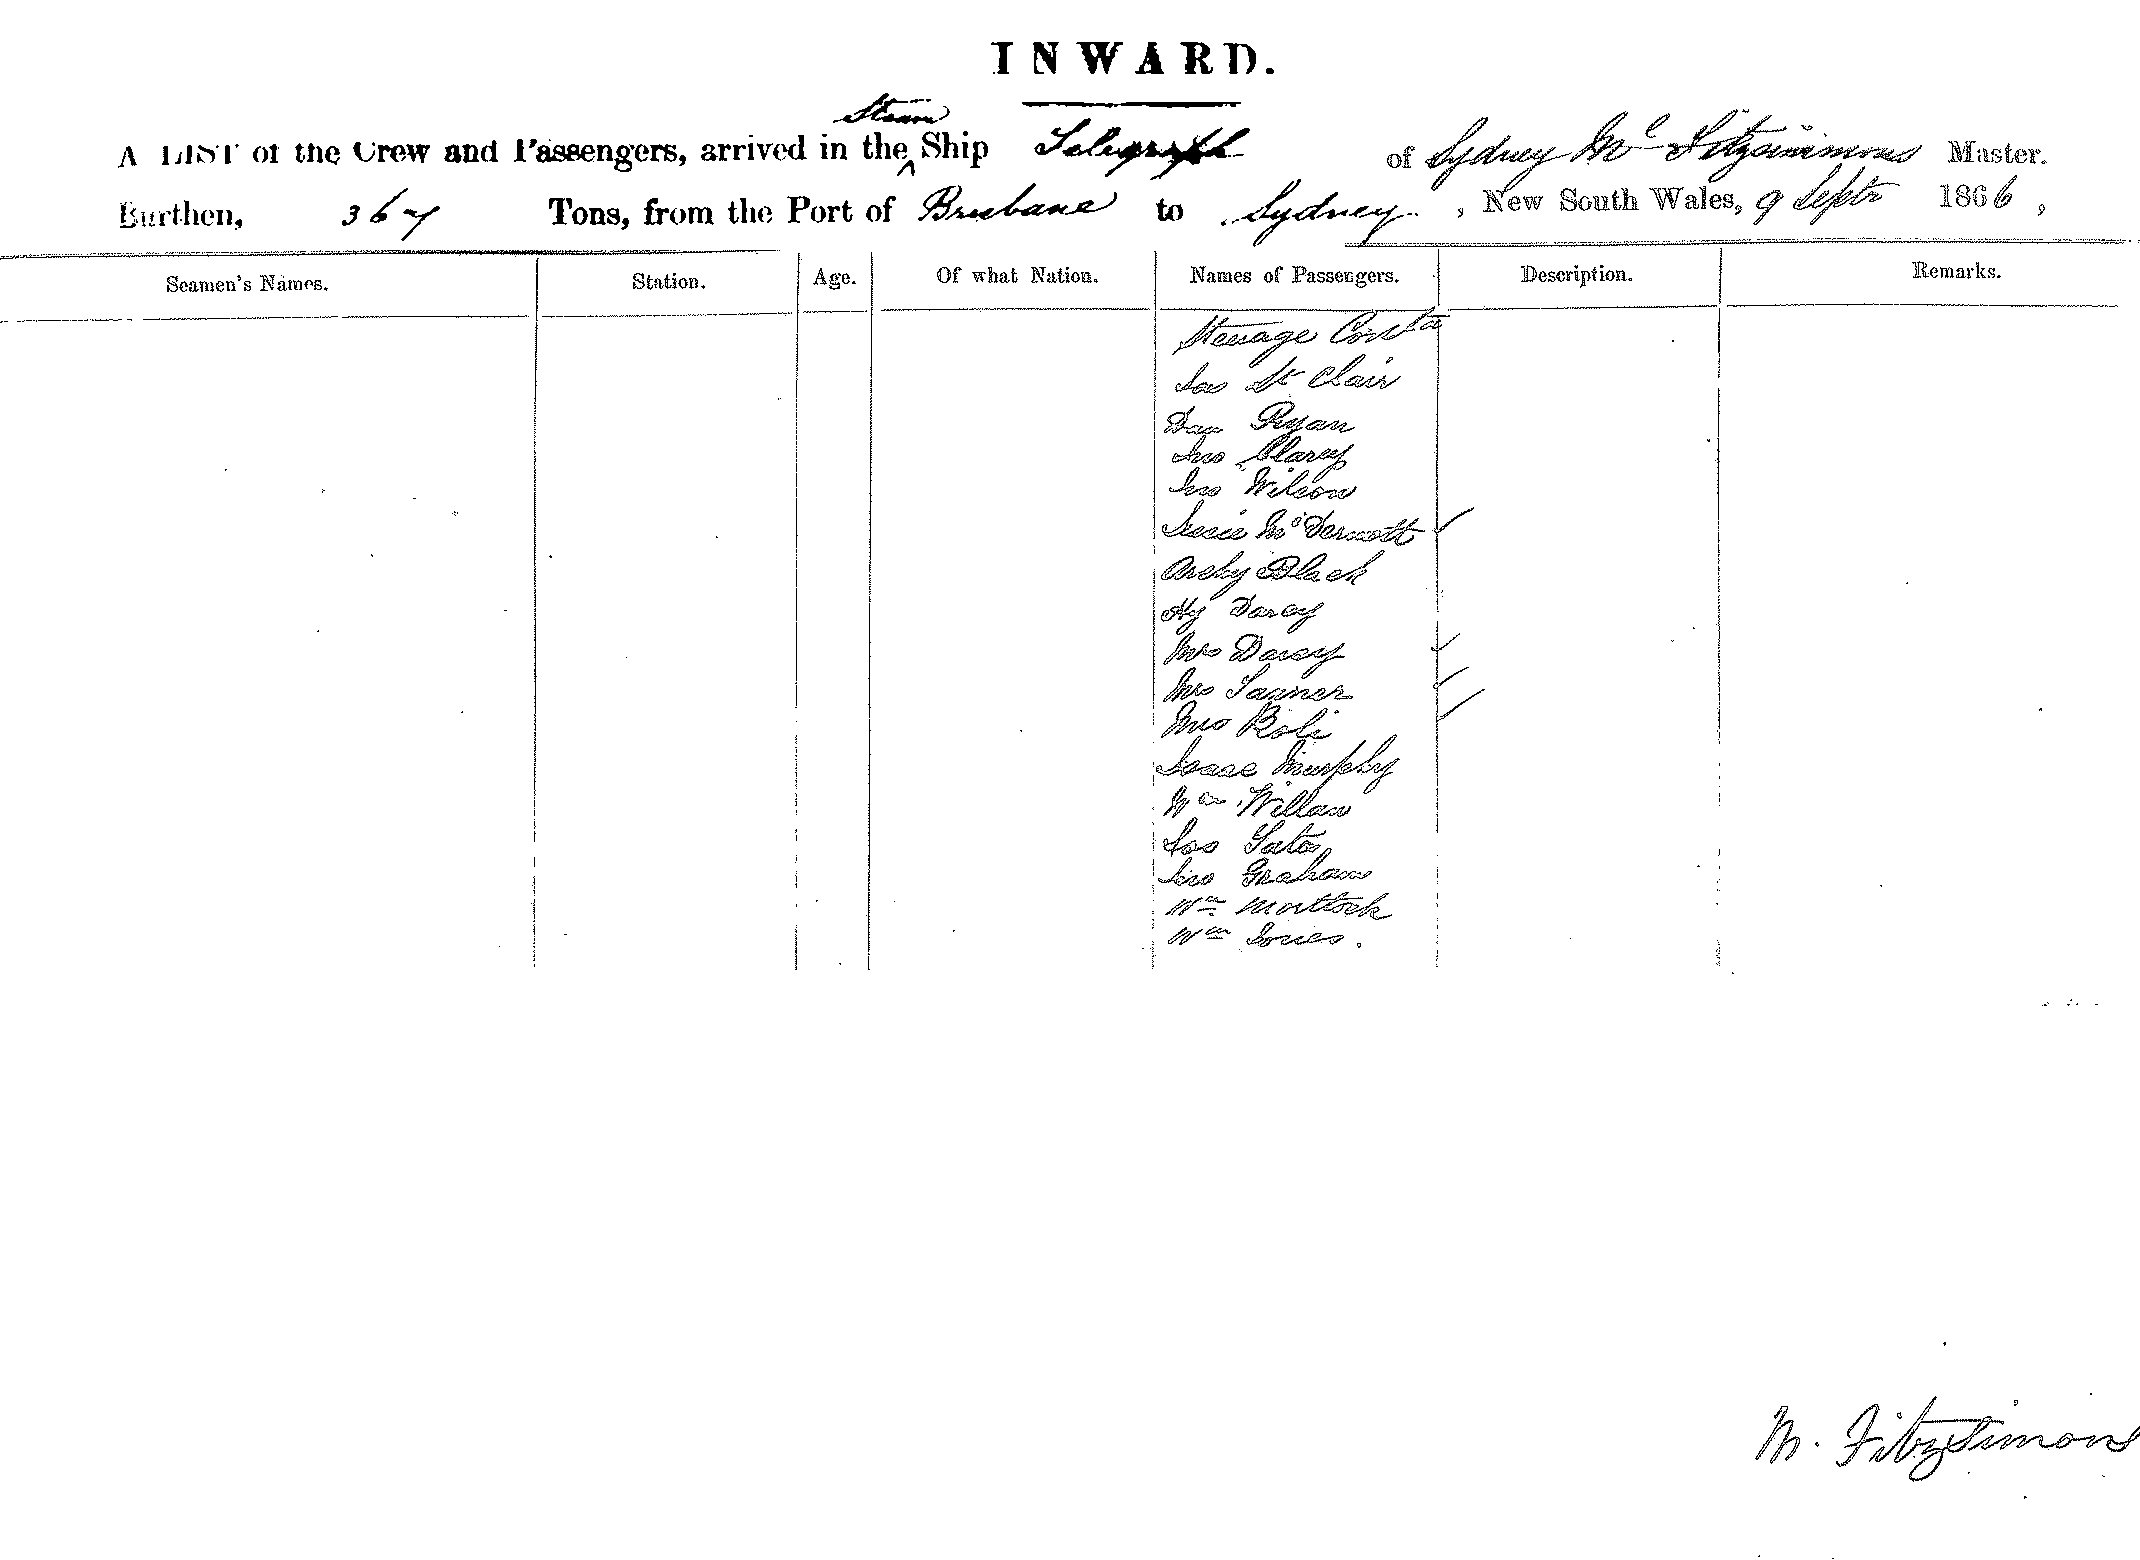 INWARD.
Steam
A LIST of the Crew and Passengers, arrived in the ^ Ship Telegraph of Sydney Mc Fitzsimmons Master.
Burthen, 367 Tons, from the Port of Brisbane to Sydney. , New South Wales, 9 Septr 1866 ,
Seamen's Names. Station. Age. Of what Nation. Names of Passengers. Description. Remarks.
Steerage Contd
Jas St Clair
Dan Ryan
Jno Clarey
Jno Wilson
Jessie McDermott
Archy Black
Hy Darcy
Mrs Darcy
Mrs Tanner
Mrs
Isaac Murphy
Wm Willan
Jas
Jno Graham
Wm Mortlock
Wm Jones.
M. Fitzsimons